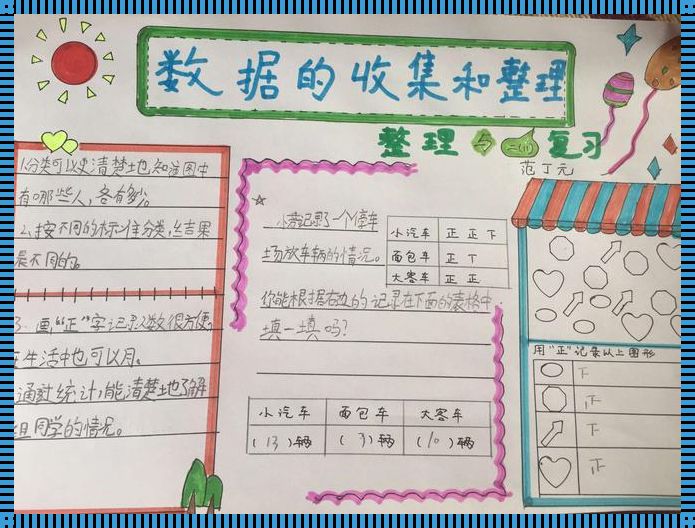 数据的收集和整理
整理与复习
范丁元
1.分类可以更清楚地知道图中
有哪些人,各有多少。
2.按不同的标准分类,结果
是不同的。
3.画“正”字记录数很方便,
在生活中也可以用。
通过统计,能清楚地了解
组同学的情况。
小芳记录了一个停车
场放车辆的情况。
小汽车 正 正 下
面包车 正 丅
大客车 正 正
你能根据右边的记录在下面的表格中
填一填吗?
小汽车 面包车 大客车
(13)辆 (3)辆 (10)辆
用“正”记录以上图形
下
正
下
正